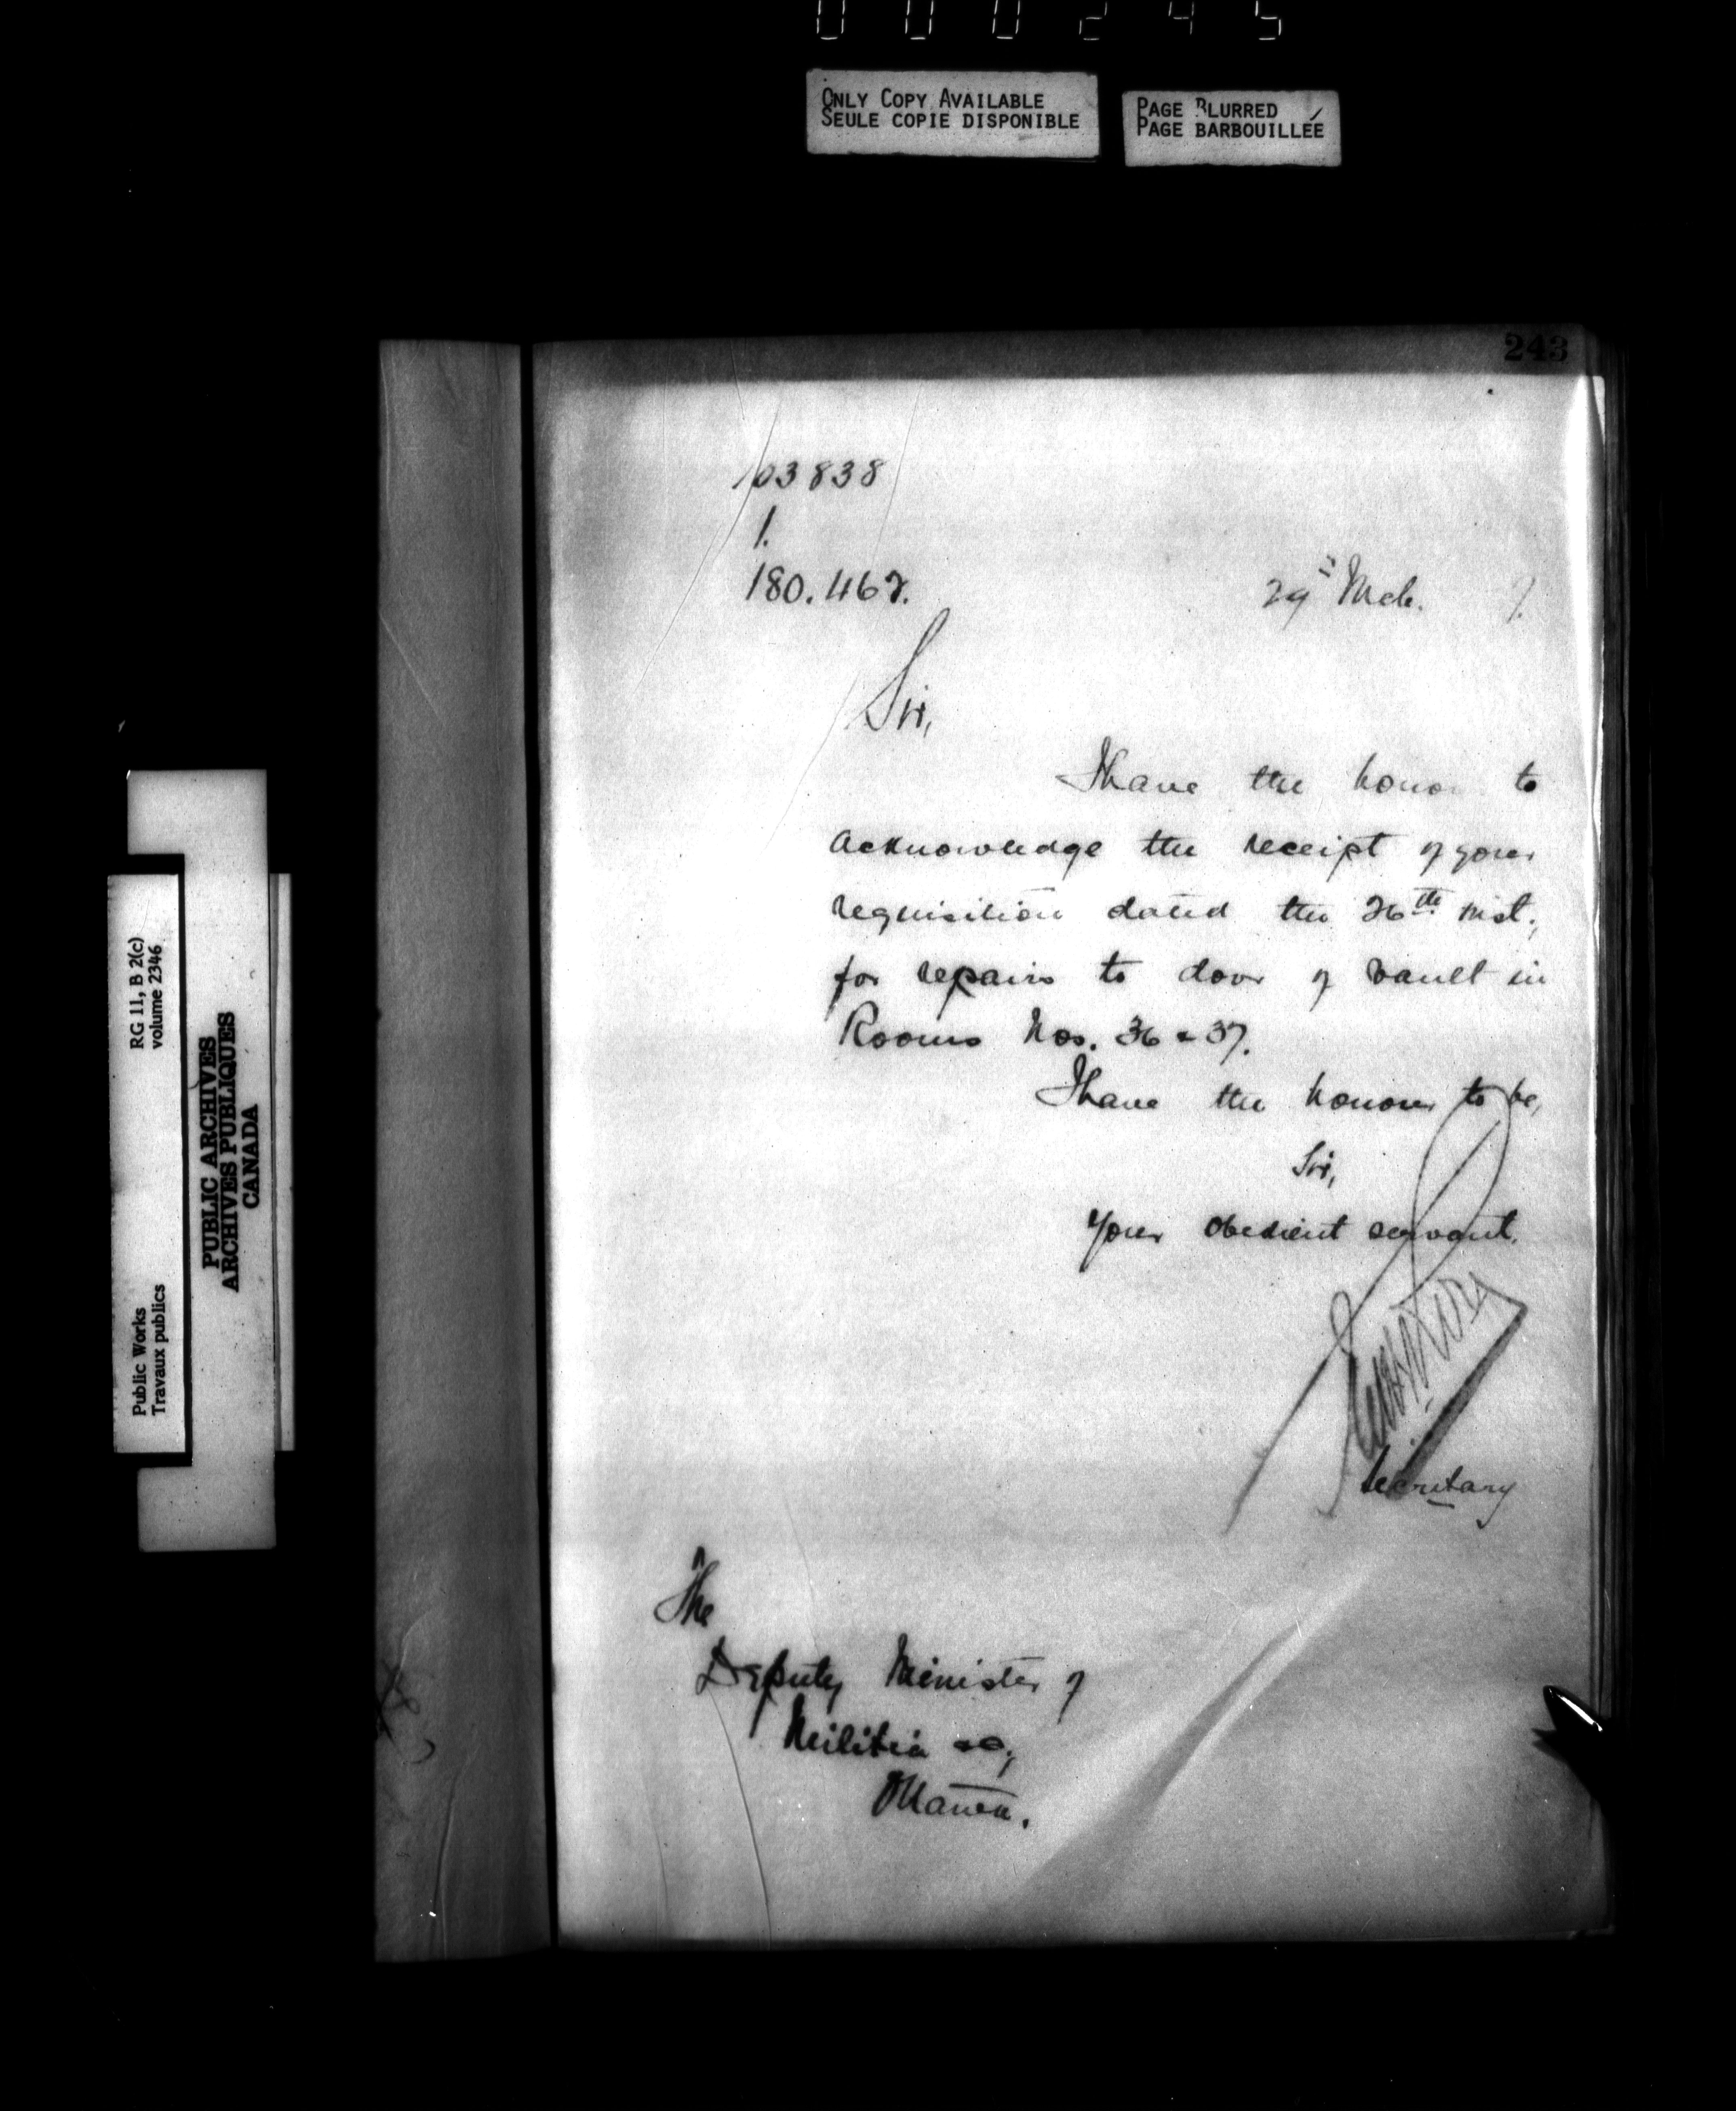 000245
ONLY COPY AVAILABLE
SEULE COPIE DISPONIBLE
PAGE BLURRED
PAGE BARBOUILLÉE
243
103838
1.
180.462.
29th Mch. 7.
Sir,
I have the honor to
acknowledge the receipt of your
requisition dated the 26th inst.,
for repairs to door of vault in
Rooms Nos. 36 & 37.
I have the honour to be,
Sir,
Your obedient servant.
Secretary
The
Deputy Minister of
Militia &c;
Ottawa.
RG 11, B 2(c)
volume 2346
Public Works
Travaux publics
PUBLIC ARCHIVES
ARCHIVES PUBLIQUES
CANADA